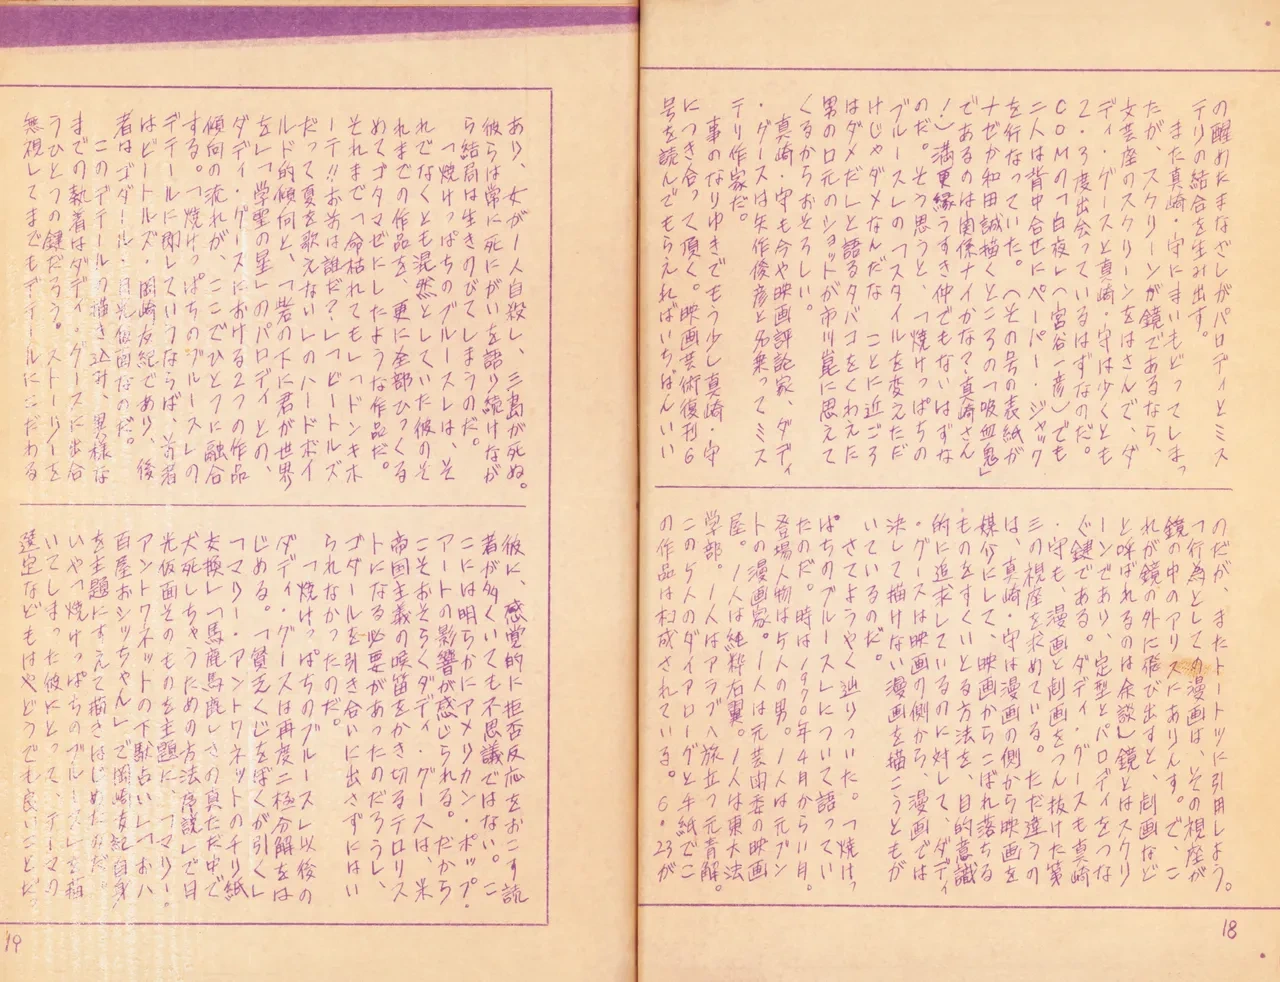 の醒めたまなざしがパロディとミス
テリの結合を生み出す。
また真崎・守にまいもどってしまっ
たが、スクリーンが鏡であるなら、
女芸座のスクリーンをはさんで、ダ
ディ・グースと真崎・守は少くとも
2・3度出会っているはずなのだ。
COMの「白夜」(宮谷一彦)でも
二人は背中合せにペーパー・ジャック
を行なっていた。(その号の表紙が
ナゼか和田誠描くところの「吸血鬼」
であるのは関係ナイかな？真崎さん
！)満更縁うすき仲でもないはずな
のだ。そう思うと、「焼けっぱちの
ブルース」の「スタイルを変えただ
けじゃダメなんだな ことに近ごろ
はダメだ」と語るタバコをくわえた
男の口元のショットが市川崑に思えて
くるからおそろしい。
真崎・守も今や映画評論家、ダディ
・グースは矢作俊彦と名乗ってミス
テリ作家だ。
事のなりゆきでもう少し真崎・守
につき合って頂く。映画芸術復刊6
号を読んでもらえればいちばんいい
のだが、またトートツに引用しよう。
「行為としての漫画は、その視座が
鏡の中のアリスにありんす。で、こ
れが鏡の外に飛び出すと、劇画など
と呼ばれるのは余談」鏡とはスクリ
ーンであり、定型とパロディをつな
ぐ鍵である。ダディ・グースも真崎
・守も、漫画と劇画をつん抜けた第
三の視座を求めている。ただ違うの
は、真崎・守は漫画の側から映画を
媒介にして、映画からこぼれ落ちる
ものをすくいとる方法を、目的意識
的に追求しているのに対して、ダディ
・グースは映画の側から、漫画では
決して描けない漫画を描こうともが
いているのだ。
さてようやく辿りついた。「焼けっ
ぱちのブルース」について語ってい
たのだ。時は1970年4月から11月。
登場人物は5人の男。1人は元ブン
トの漫画家。1人は元芸闘委の映画
屋。1人は純粋右翼。1人は東大法
学部。1人はアラブへ旅立つ元青解。
この5人のダイアローグと手紙でこ
の作品は構成されている。6・23が
18
あり、女が1人自殺し、三島が死ぬ。
彼らは常に死にがいを語り続けなが
ら結局は生きのびてしまうのだ。
「焼けっぱちのブルース」は、そ
れでなくとも混然としていた彼のそ
れまでの作品を、更に全部ひっくる
めてゴタマゼにしたような作品だ。
それまで「命枯れても」「ドンキホ
ーテ!!お前は誰だ？」「ビートルズ
だって夏を歌えない」のハードボイ
ルド的傾向と、「岩の下に君が世界
を」「学聖の星」のパロディとの、
ダディ・グースにおける2つの作品
傾向の流れが、ここでひとつに融合
する。「焼けっぱちのブルース」の
デテールに即していうならば、前者
はビートルズ・岡崎友紀であり、後
者はゴダール・月光仮面なのだ。
このデテールの描き込み、異様な
までの執着はダディ・グースに出合
うひとつの鍵だろう。ストーリーを
無視してまでもデテールにこだわる
彼に、感覚的に拒否反応をおこす読
者が多くいても不思議ではない。こ
こには明らかにアメリカン・ポップ・
アートの影響が感じられる。だから
こそおそらくダディ・グースは、米
帝国主義の喉笛をかき切るテロリス
トになる必要があったのだろうし、
ゴダールを引き合いに出さずにはい
られなかったのだ。
「焼けっぱちのブルース」以後の
ダディ・グースは再度二極分解をは
じめる。「貧乏くじをぼくが引く」
「マリー・アントワネットのチリ紙
交換」「馬鹿馬鹿しさの真ただ中で
犬死しちゃうための方法序説」で月
光仮面そのものを主題に、「マリー・
アントワネットの下駄占い」「おハ
百屋おシッちゃん」で岡崎友紀自身
を主題にすえて描きはじめたのだ。
いや「焼けっぱちのブルース」を描
いてしまった彼にとって、テーマの
選定などもはやどうでも良いことだ
19